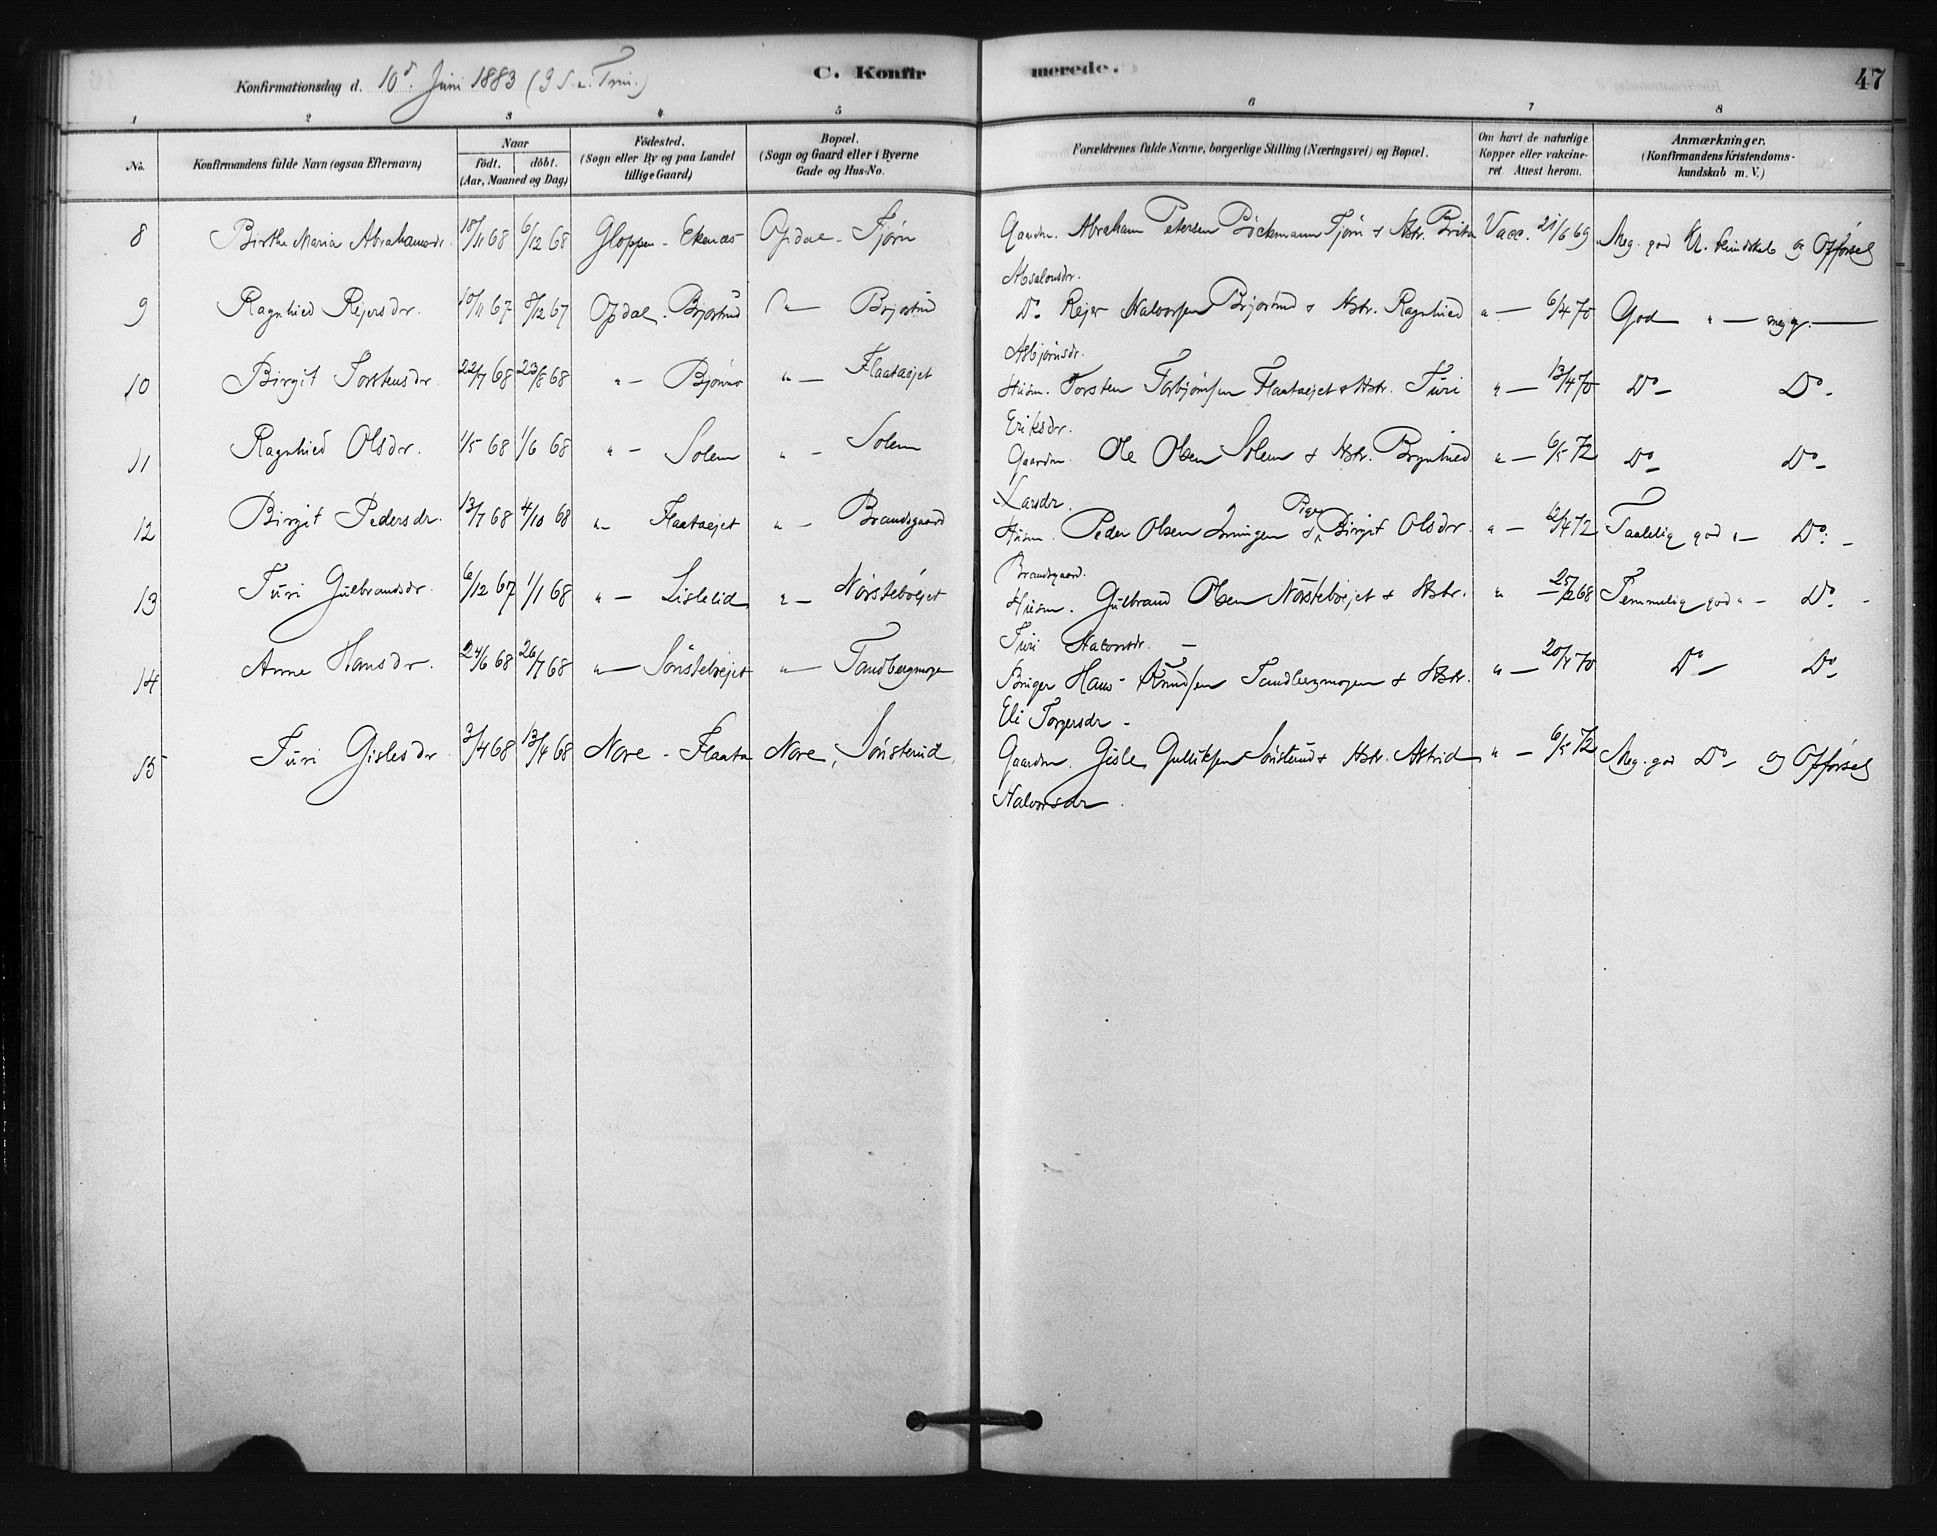 Konfirmationsdag d. 10d Juni 1883 (3 S. e. Trin.)
C. Konfirmerede.
47
1 2 3 4 5 6 7 8
No.
Konfirmandens fulde Navn (ogsaa Efternavn)
Naar
födt. döbt.
(Aar, Maaned og Dag)
Födested.
(Sogn eller By og paa Landet
tillige Gaard)
Bopæl.
(Sogn og Gaard eller i Byerne
Gade og Hus-No.
Forældrenes fulde Navne, borgerlige Stilling (Næringsvei) og Bopæl.
Om havt de naturlige
Kopper eller vakcine-
ret Attest herom.
Anmærkninger.
(Konfirmandens Kristendoms-
kundskab m. V.)
8 Birthe Maria Abrahamsdr. 10/11 68 6/12 68 Gloppen - Ekenæs Opdal - Tjørn Gaardm. Abraham Petersen Böckmann Tjørn & Hstr. Brita Vacc. 21/6 69 Meg. god Kr. kundskab og Opførsel
Absalonsdr.
9 Ragnhied Rejersdr. 10/11 67 8/12 67 Opdal - Brjostrud " — Brjostrud Do Rejer Halvorsen Brjostrud & Hstr. Ragnhied " — 6/4 70 God " — meg g. —
Asbjørnsdr.
10 Birgit Torstensdr. 22/7 68 23/8 68 " — Bjønno " — Flaataejet Husm. Torsten Torbjørnsen Flaataejet & Hstr. Turi " — 13/4 70 Do — Do -
Eriksdr.
11 Ragnhied Olsdr. 1/5 68 1/6 68 " — Solem " - Solem Gaardm. Ole Olsen Solem & Hstr. Brynhied " — 6/5 72 Do — Do —
Larsdr.
12 Birgit Pedersdr. 13/7 68 4/10 68 " — Flaataejet " — Brandsgaard Husm. Peder Olsen & Pige Birgit Olsdr. " — 6/4 72 Taalelig god " — Do -
Brandsgaard.
13 Turi Gulbrandsdr. 6/12 67 1/1 68 " — Lislelid " — Nørstebøejet Husm. Gulbrand Olsen Nørstebøejet & Hstr. " — 25/2 68 Temmelig god " — Do -
Turi Halvorsdr. —
14 Anne Hansdr. 24/6 68 26/7 68 " — Sønstebøejet " — Tandbergmogen Bruger Hans Knudsen Tandbergmogen & Hstr. " — 20/4 70 Do — Do -
Eli Torgersdr —
15 Turi Gislesdr. 3/4 68 13/4 68 Nore - Flaata Nore, Sønsterud, Gaardm. Gisle Gulliksen Sønsterud & Hstr. Astrid " — 6/5 72 Meg. god Do — og Opførsel
Halvorsdr.